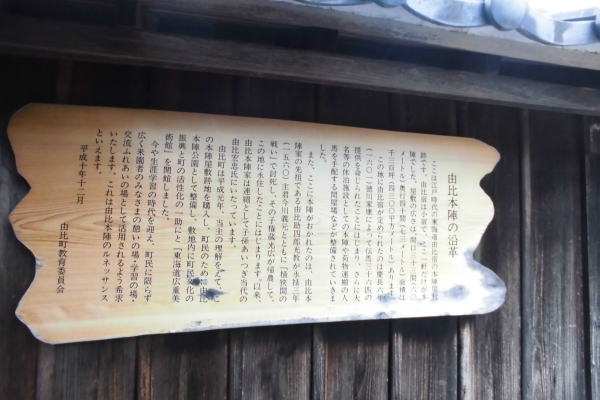 由比本陣の沿革
ここは江戸時代の東海道由比宿の本陣屋敷
跡です。由比宿は小宿で、ここ一軒だけが本
陣でした。屋敷の広さは、間口三十三間(六〇
メートル)奥行四十間(七三メートル)面積は
この地に由比宿が定められたのは慶長六年
(一六〇一)徳川家康によって伝馬三十六匹の
提供を命じられたことにはじまり、さらに大
名等の休泊施設としての本陣や荷物運搬の人
馬を手配する問屋場などが整備されていきま
した。
また、ここに本陣がおかれたのは、由比本
陣家の先祖である由比助四郎光教が永禄三年
(一五六〇)主君今川義元とともに「桶狭間の
戦い」で討死し、その子権蔵光広が帰農して、
この地に永住したことにはじまります。以来、
由比本陣家は連綿として子孫あいつぎ当代の
由比宏忠氏にいたっています。
由比町は平成元年、当主の理解をえて、こ
の本陣屋敷跡地を購入し、町民のための由比
本陣公園として整備し、敷地内に町民文化の
振興と町の活性化の一助にと『東海道広重美
術館』を開館しました。
今や生涯学習の時代を迎え、町民に限らず
広く来園者のみなさまの憩いの場・学習の場・
交流ふれあいの場として活用されるよう希求
いたします。これは由比本陣のルネッサンス
といえます。
平成十年十二月
由比町教育委員会